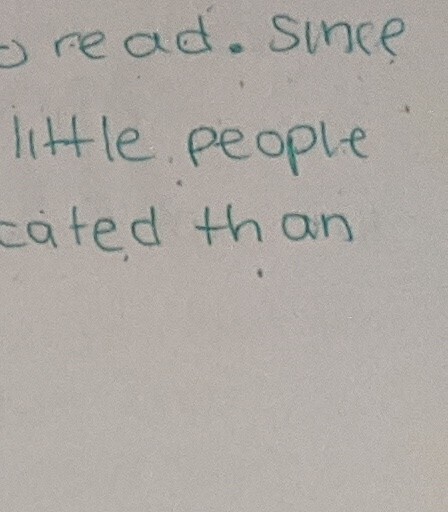 o read. Since
little people
cated than